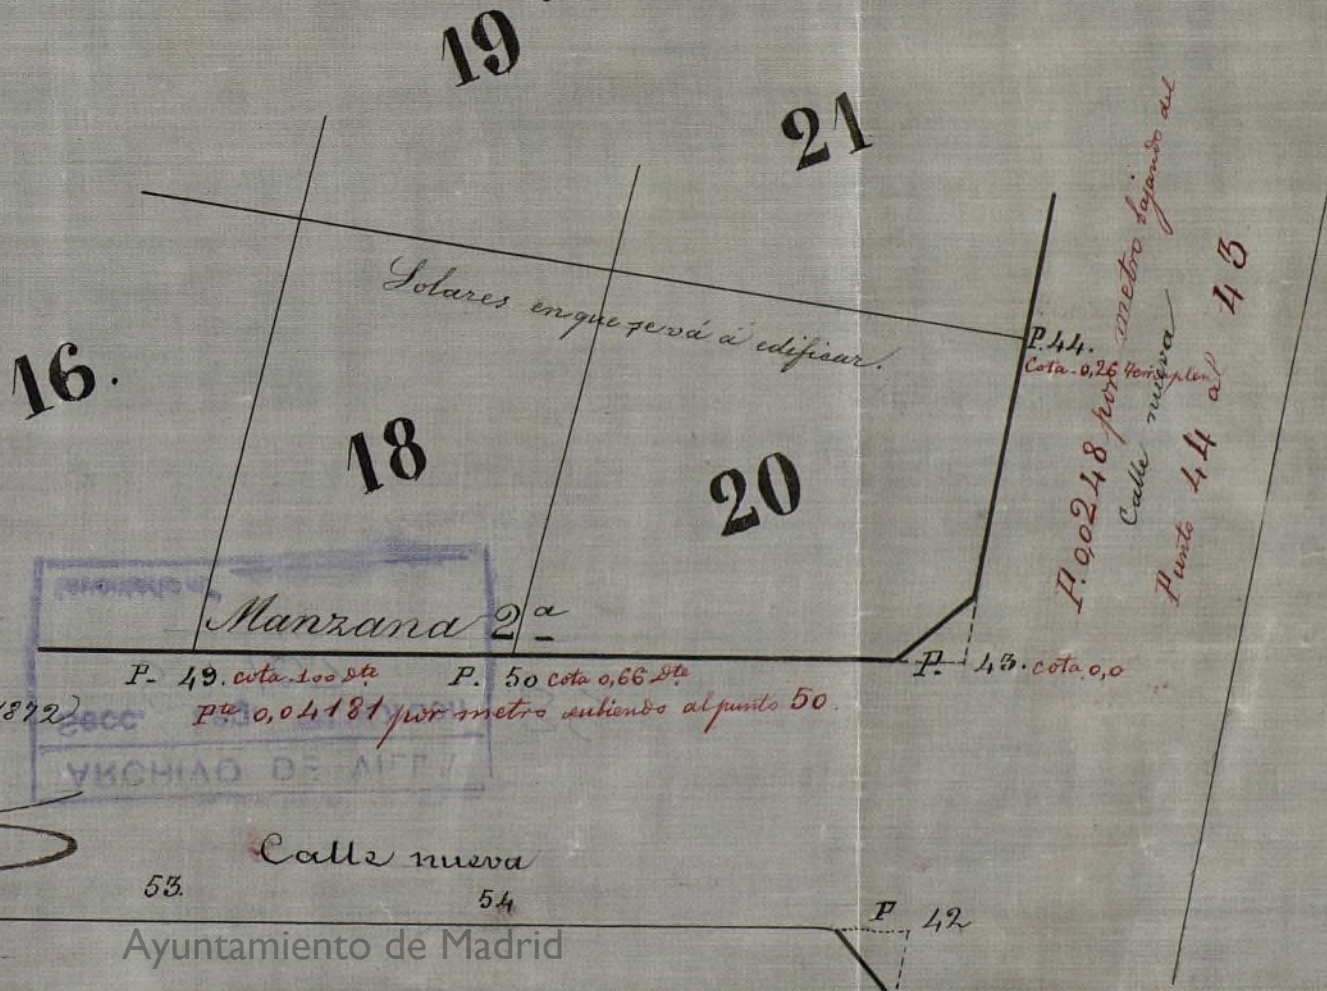 19
21
Solares en que se vá á edificar.
P. 44.
Cota-0,26 Terraplen
P. 0,0248 por metro bajando del
Calle nueva
Punto 44 al 43
16.
18
20
Manzana 2ª
P- 49. cota 1,00 Dte
P. 50 cota 0,66 Dte
P. 43. cota 0,0
1872)
Pte 0,04181 por metro subiendo al punto 50.
ARCHIVO DE VILLA
Calle nueva
53.
54
P 42
Ayuntamiento de Madrid